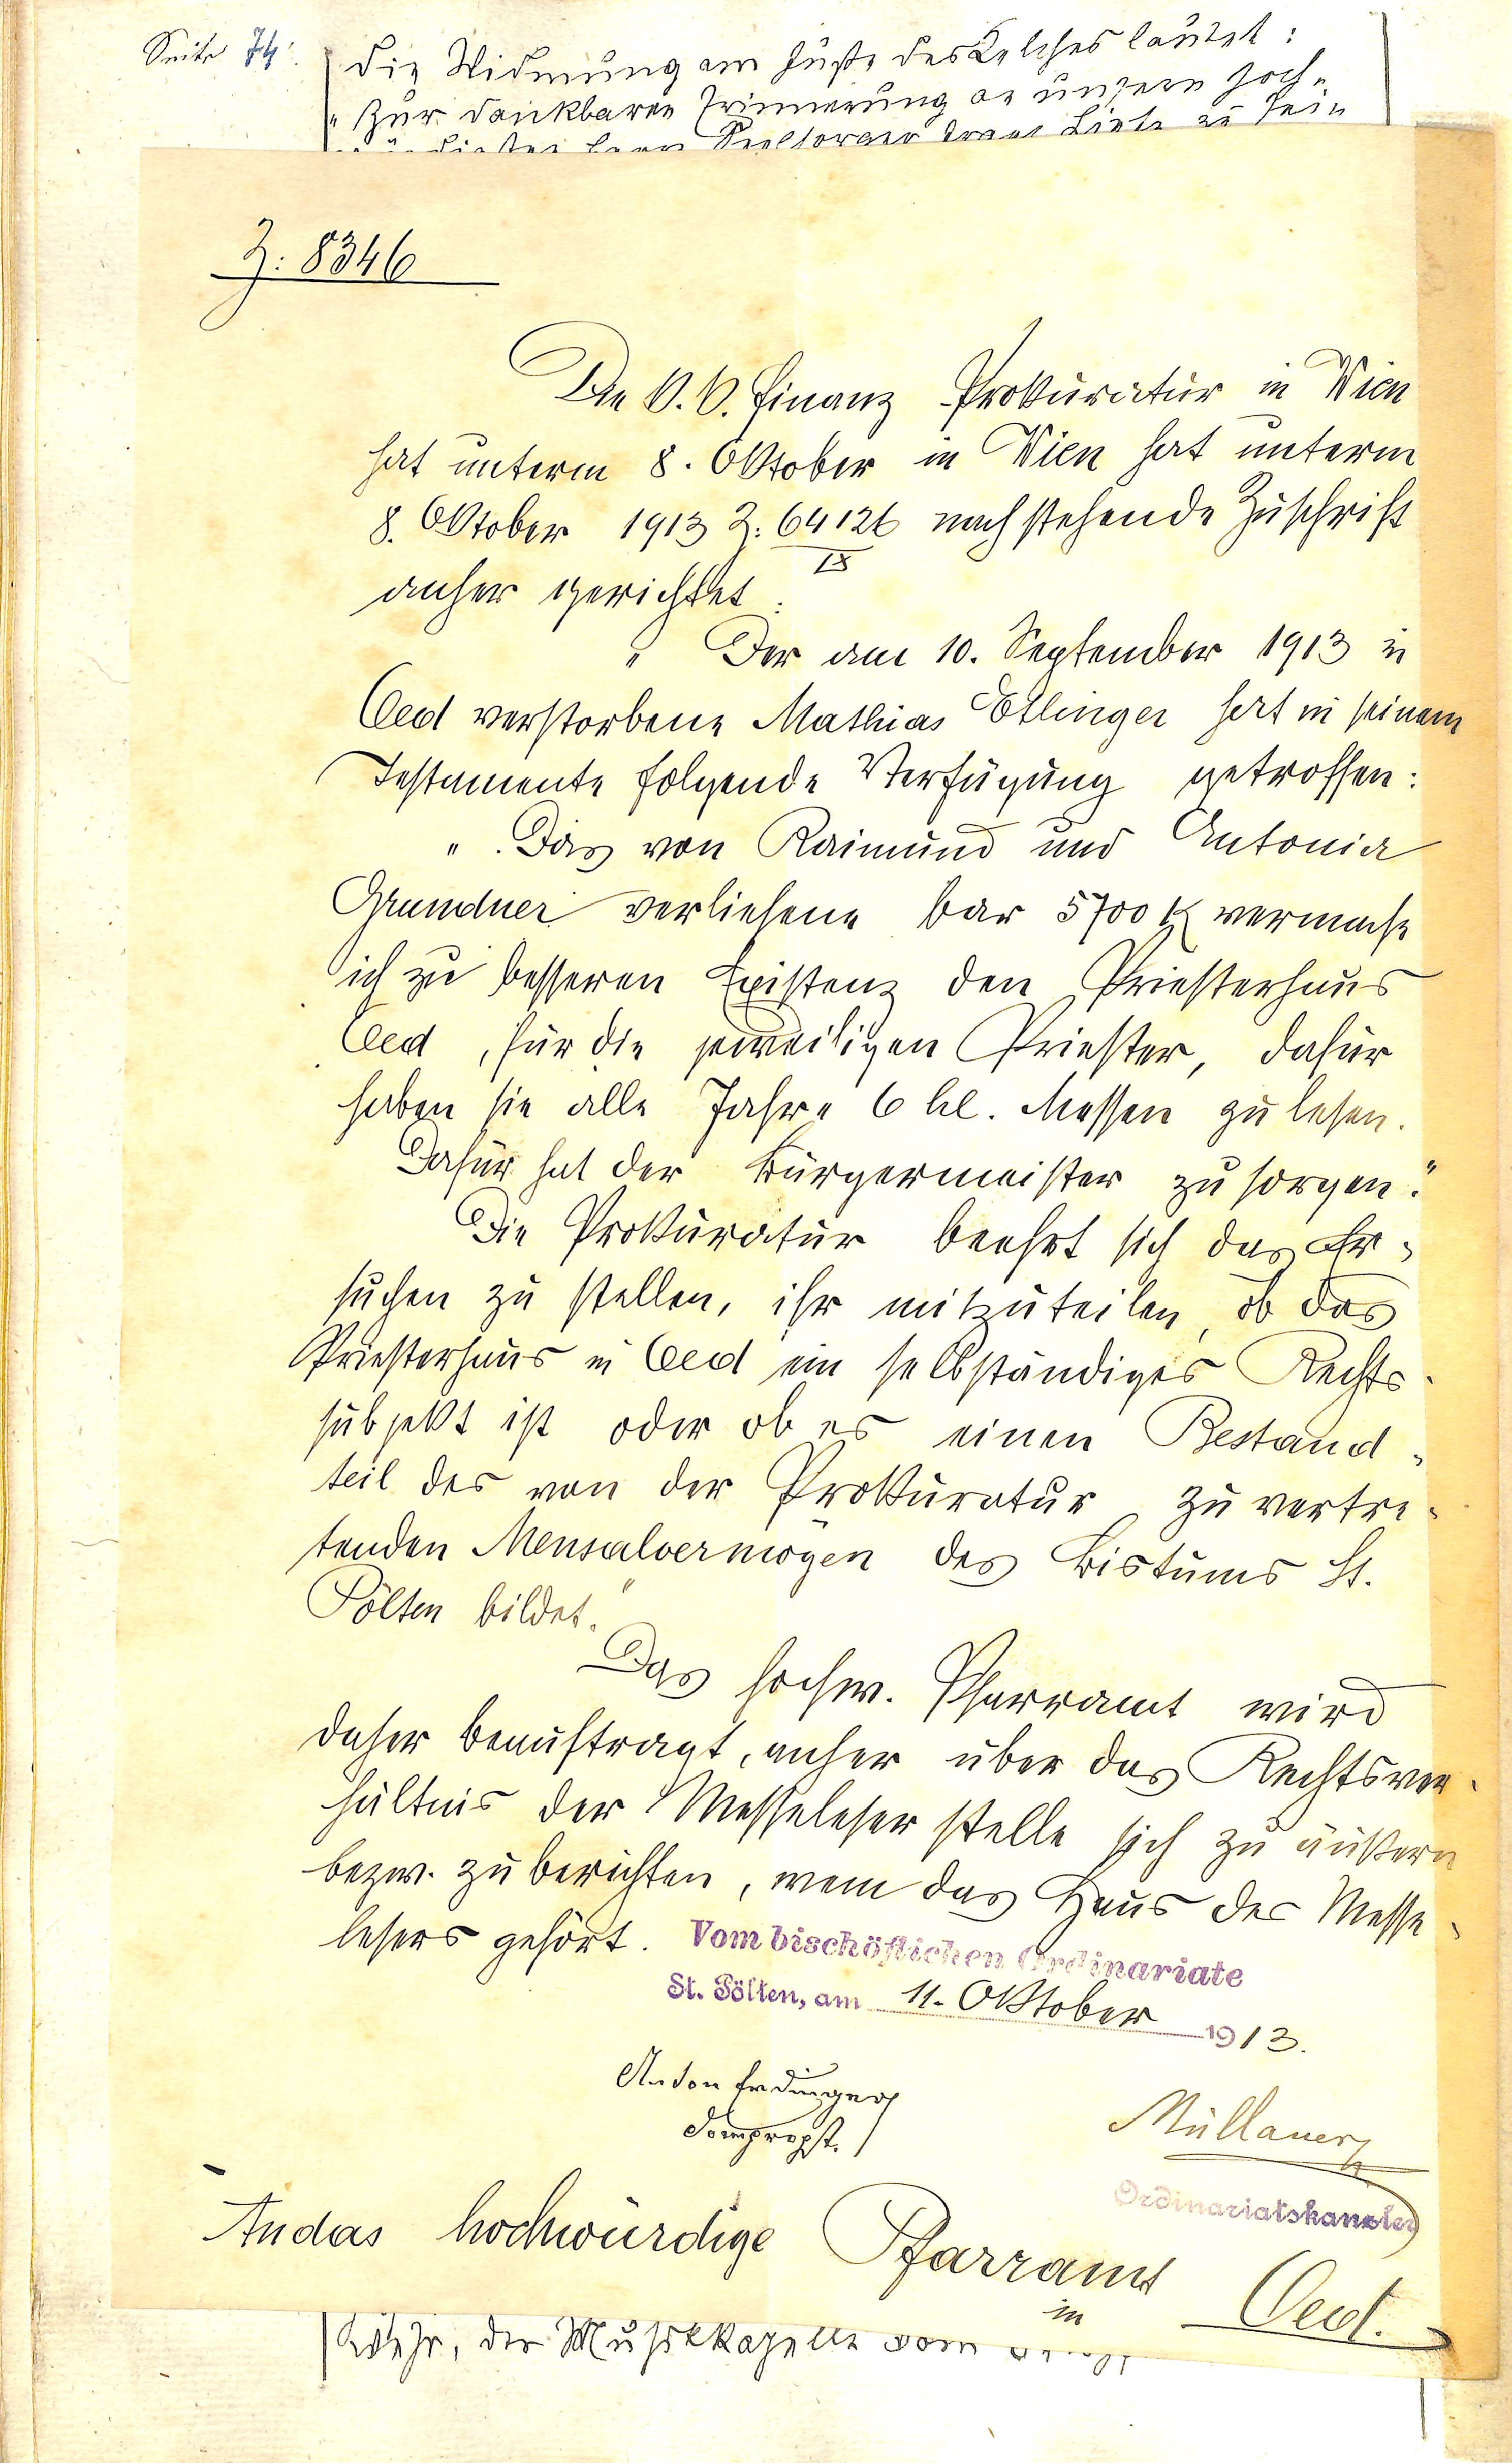 Seite 74:
Die Widmung am Fuße des Kelches lautet:
"Zur dankbaren Erinnerung an unsern hoch-
Seelsorger
Z: 8346
Die k. k. Finanz Prokuratur in Wien
hat unterm 8. Oktober in Wien hat unterm
8. Oktober 1913 Z: 64126/IX nachstehende Zuschrift
anher gerichtet:
" Der am 10. September 1913 in
Oed verstorbene Mathias Etlinger hat in seinem
Testamente folgende Verfügung getroffen:
" Das von Raimund und Antonia
Grundner verliehene bar 5700 K vermache
ich zu besseren Existenz den Priesterhaus
Oed, für die jeweiligen Priester, dafür
haben sie alle Jahre 6 hl. Messen zu lesen.
Dafür hat der Bürgermeister zu sorgen."
Die Prokuratur beehrt sich das Er-
suchen zu stellen, ihr mitzuteilen, ob das
Priesterhaus in Oed ein selbständiges Rechts-
subjekt ist oder ob es einen Bestand-
teil des von der Prokuratur zu vertre-
tenden Mensalvermögen des Bistums St.
Pölten bildet."
Das hochw. Pfarramt wird
daher beauftragt, anher über das Rechtsver-
hältnis der Messeleser stelle sich zu äußern
bezw. zu berichten, wem das Haus des Messe-
lesers gehört.
Vom bischöflichen Ordinariate
St. Pölten, am 11. Oktober 1913.
Anton Erdinger
Dompropst.
Müllauer
Ordinariatskanzler
An das hochwürdige Pfarramt
in Oed.
der Musikkapelle vom